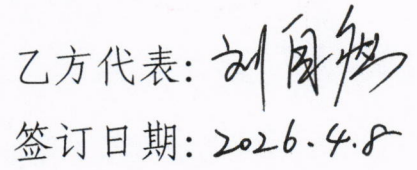 乙方代表: 刘
签订日期: 2026.4.8